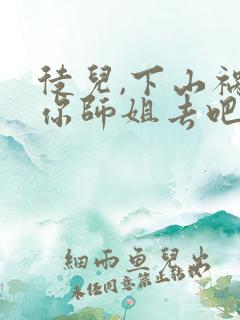 徒兒,下山禍
你師姐去吧
細雨魚兒出
未任同意禁止轉載